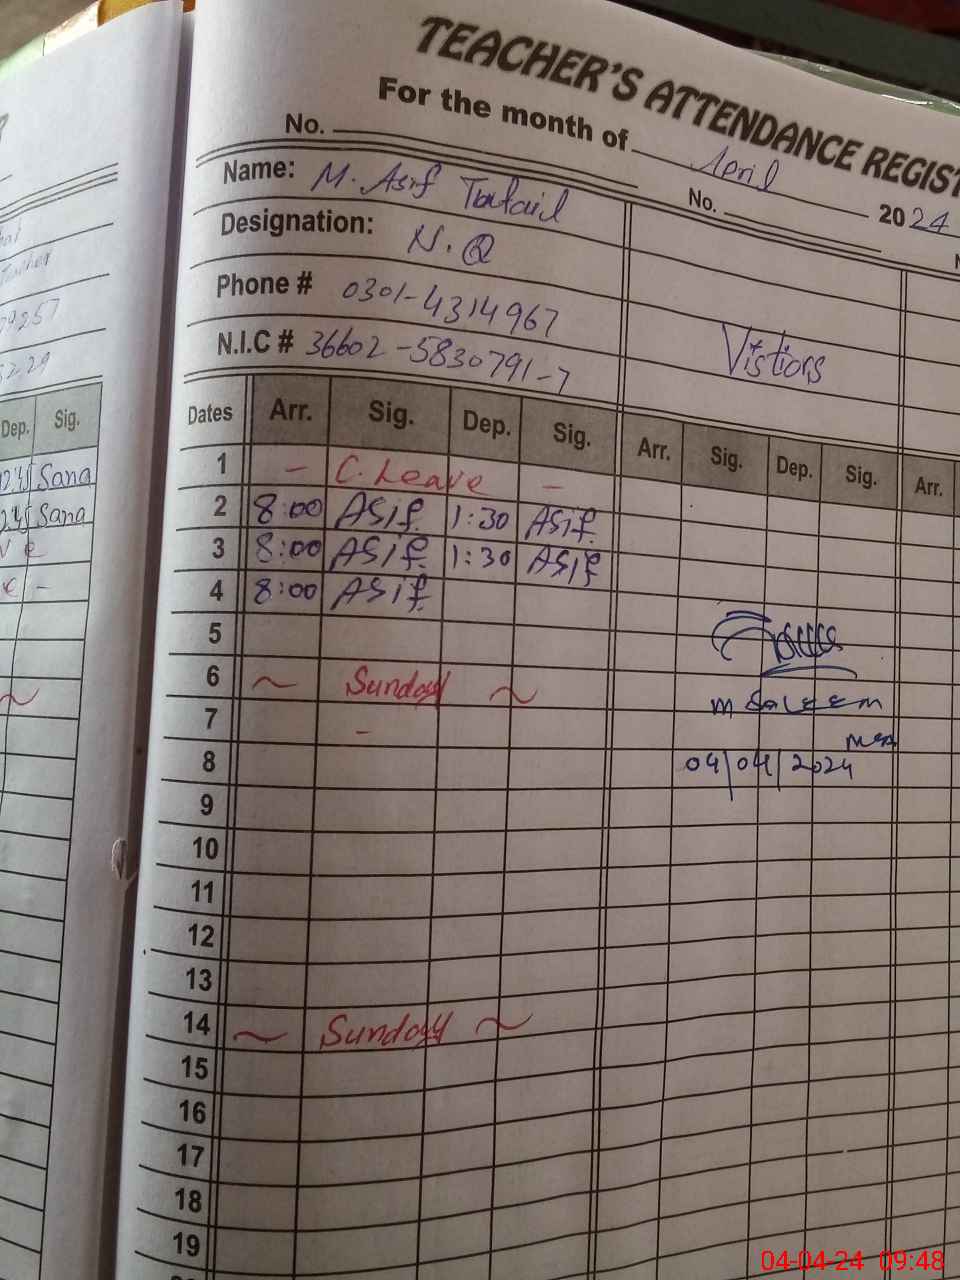 TEACHER'S ATTENDANCE REGIST
For the month of April 2024
No. No.
Name: M. Asif Tufail
Designation: N.Q
Phone # 0301-4314967
N.I.C # 36602-5830791-7
Vistiors
Dep. Sig.
12:45 Sana
2:45 Sana
Dates Arr. Sig. Dep. Sig. Arr. Sig. Dep. Sig. Arr.
1 - C. Leave -
2 8:00 Asif 1:30 Asif
3 8:00 Asif 1:30 Asif
4 8:00 Asif
5
6 ~ Sunday ~
7 -
M SALEEM
MEA
8 04/04/2024
9
10
11
12
13
14 ~ Sunday ~
15
16
17
18
19
04-04-24 09:48